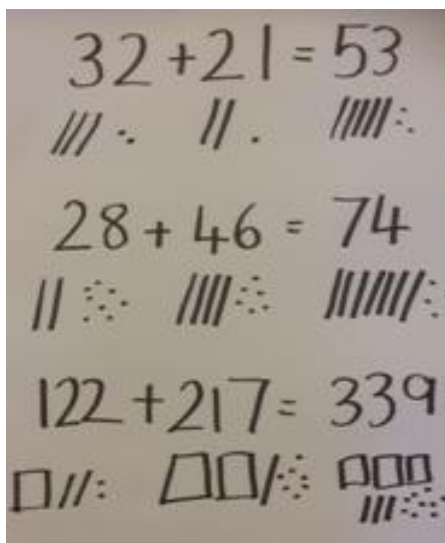 32 + 21 = 53
28 + 46 = 74
122 + 217 = 339